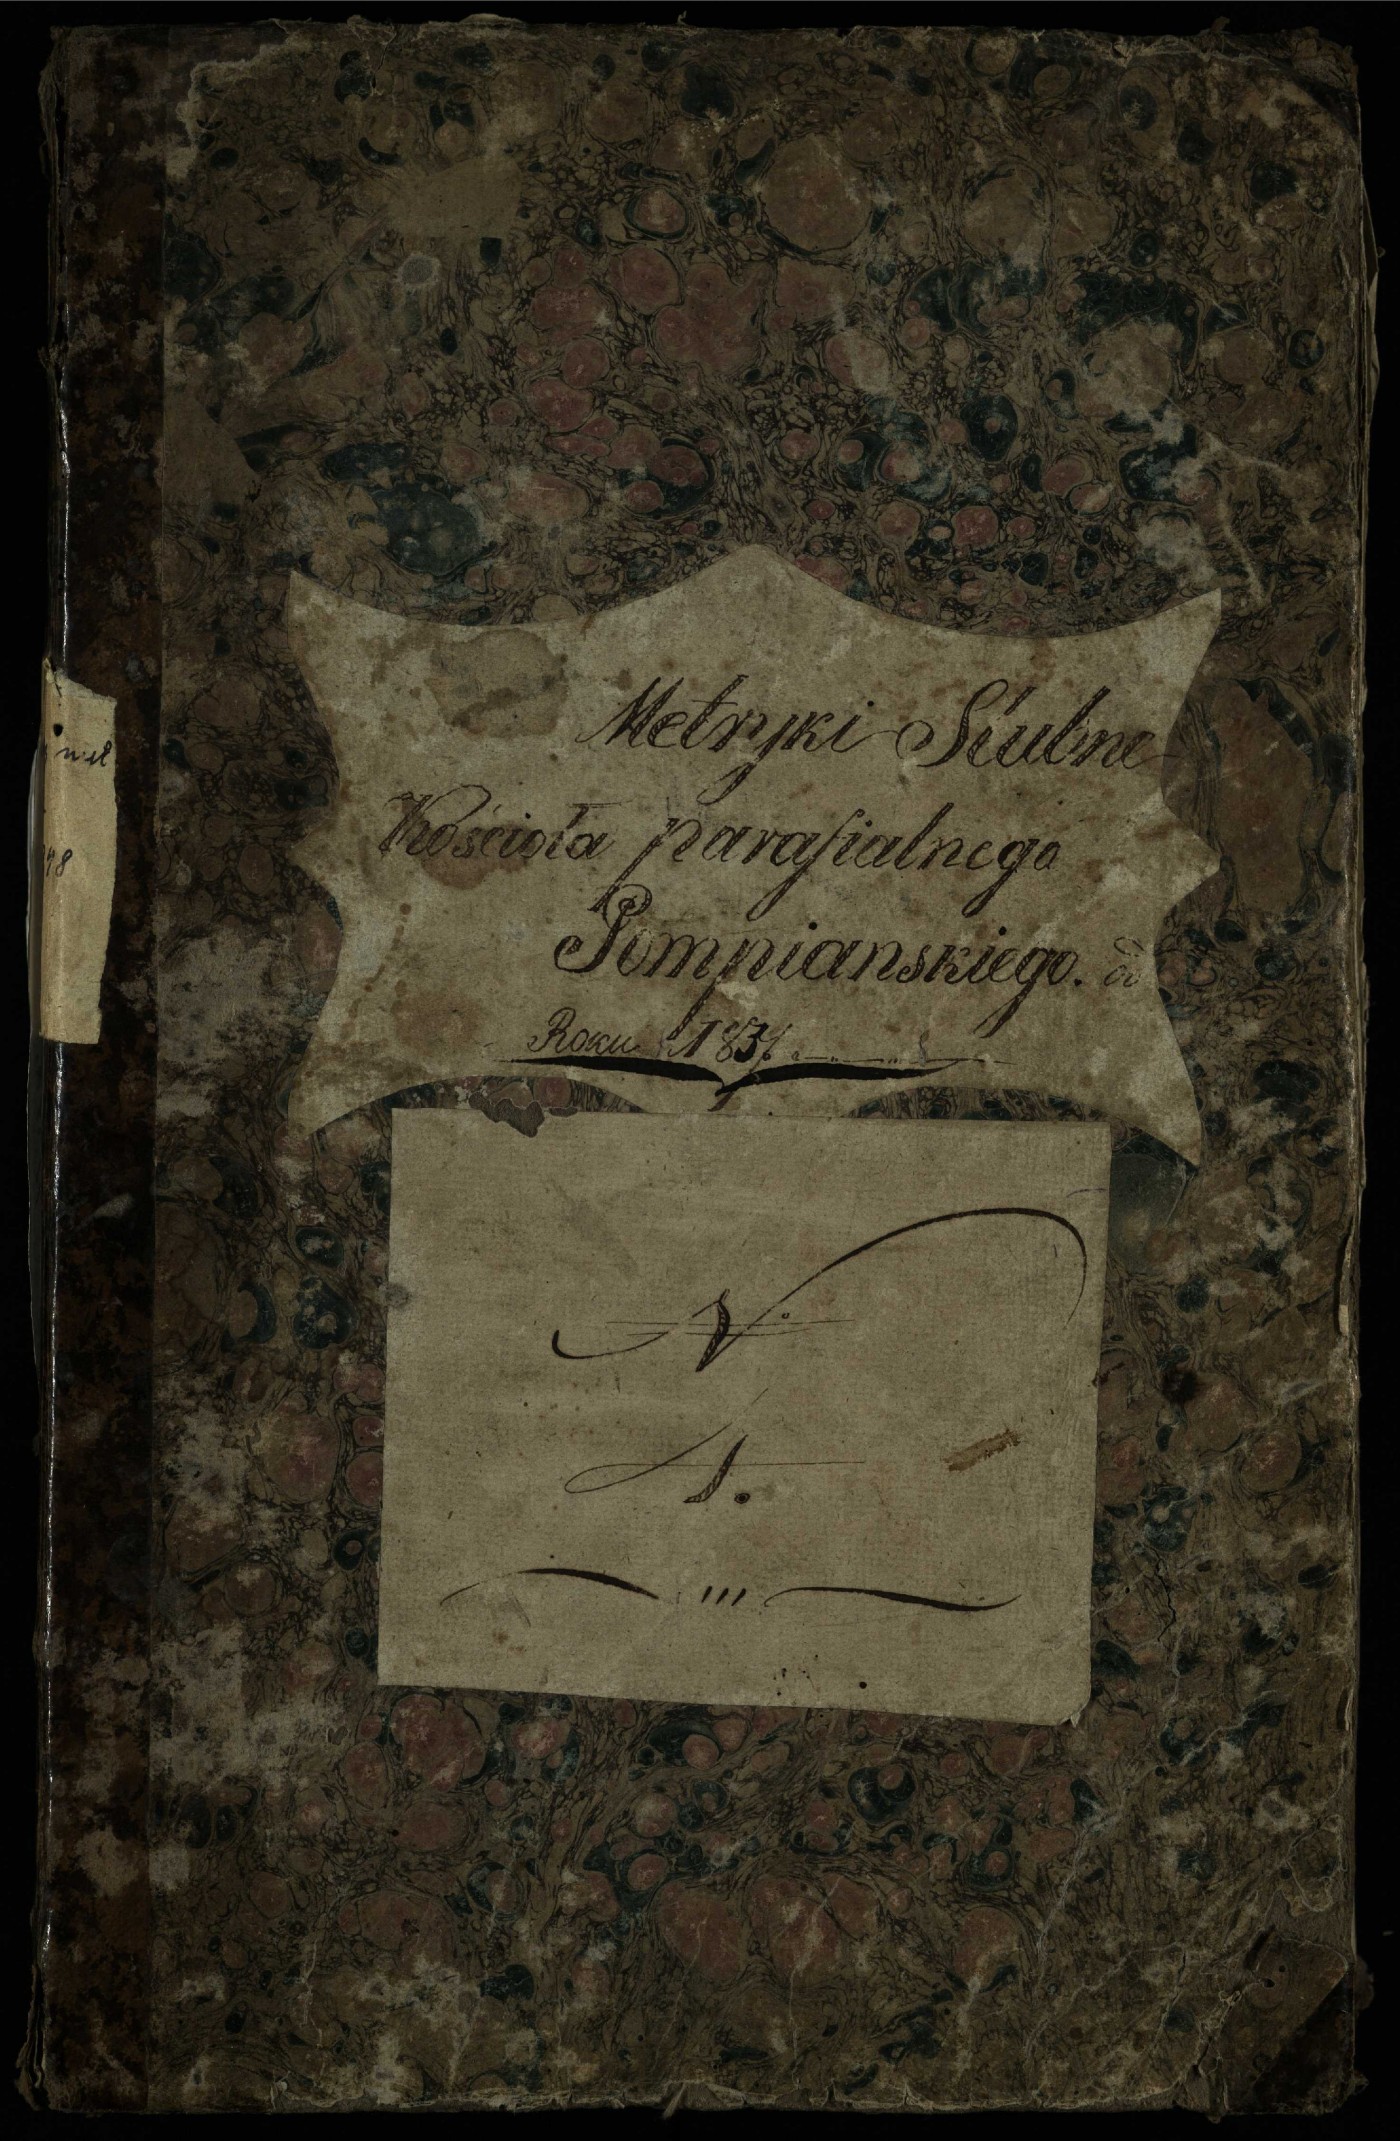 Metryki Slubne
Kościoła parafialnego
Pompianskiego. od
Roku 1837
N
1.
48